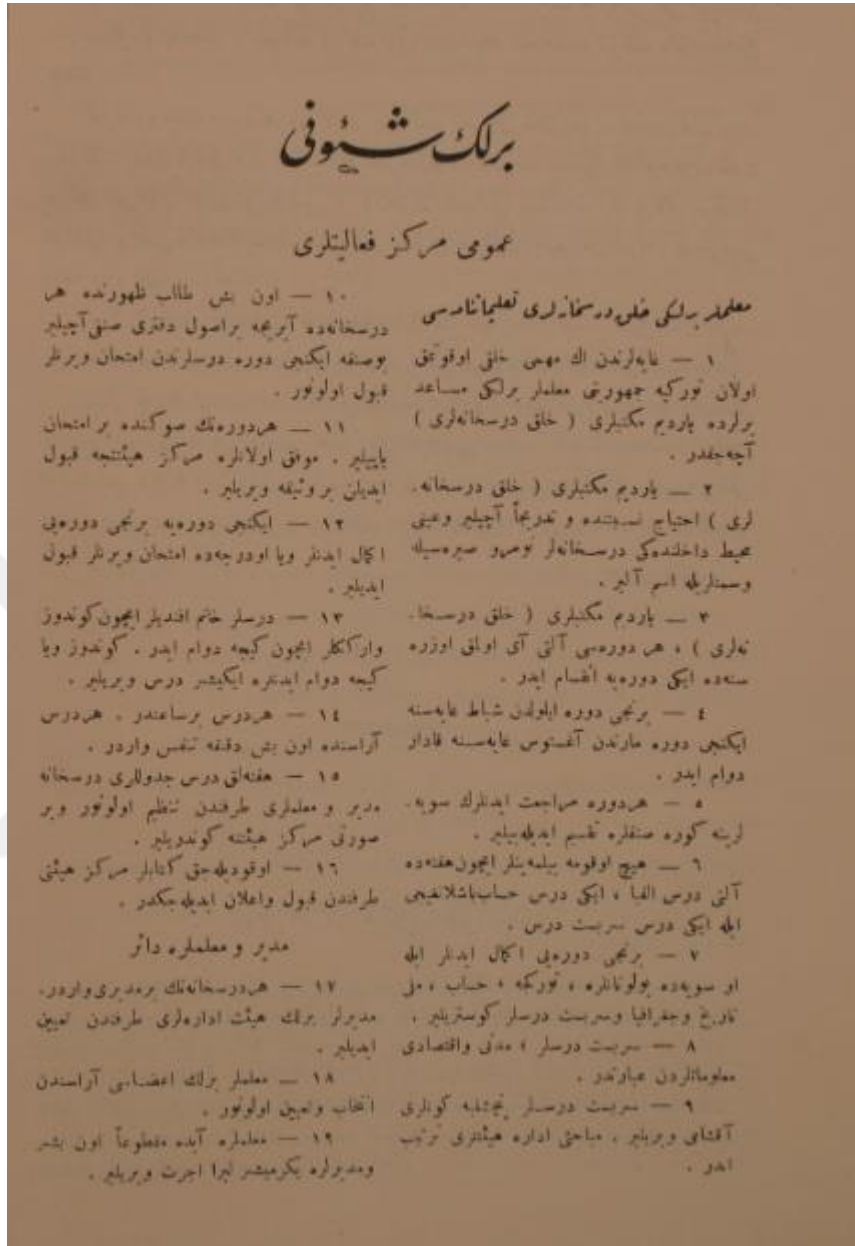 برلك شئونی
عمومی مركز فعاليتلری
معلملر برلكی خلق درسخانه‌لری تعليماتنامه‌سی
١ — غايه‌لرندن اك مهمی خلقی اوقوتمق
اولان توركيه جمهوريتی معلملر برلكی مساعد
يرلرده ياردم مكتبلری ( خلق درسخانه‌لری )
آچه‌جقدر .
٢ — ياردم مكتبلری ( خلق درسخانه‌-
لری ) احتياج نسبتنده و تدريجاً آچيلير وعينی
محيط داخلنده‌كی درسخانه‌لر نومرو صيره‌سيله
وسمتلريله اسم آلير .
٣ — ياردم مكتبلری ( خلق درسخا-
نه‌لری ) ، هر دوره‌سی آلتی آی اولمق اوزره
سنه‌ده ايكی دوره‌يه انقسام ايدر .
٤ — برنجی دوره ايلولدن شباط غايه‌سنه
ايكنجی دوره مارتدن آغستوس غايه‌سنه قادار
دوام ايدر .
٥ — هردوره مراجعت ايدنلرك سويه‌-
لرينه كوره صنفلره تقسيم ايديله‌بيلير .
٦ — هيچ اوقومه بيلمه‌ينلر ايچون هفته‌ده
آلتی درس الفبا ، ايكی درس حساب باشلانغيجی
ايله ايكی درس سربست درس .
٧ — برنجی دوره‌يی اكمال ايدنلر ايله
او سويه‌ده بولونانلره ، توركجه ، حساب ، ملی
تاريخ وجغرافيا وسربست درسلر كوستريلير .
٨ — سربست درسلر ، مدنی واقتصادی
معلوماتلردن عبارتدر .
٩ — سربست درسلر پنجشنبه كونلری
آقشامی ويريلير . مباحثی اداره هيئتلری ترتيب
ايدر .
١٠ — اون بش طالب ظهورنده هر
درسخانه‌ده آيريجه بر اصول دفتری صنفی آچيلير
بوصنفه ايكنجی دوره درسلرندن امتحان ويرنلر
قبول اولونور .
١١ — هردوره‌نك صوكنده بر امتحان
ياپيلير . موفق اولانلره مركز هيئتنجه قبول
ايديلن بر وثيقه ويريلير .
١٢ — ايكنجی دوره‌يه برنجی دوره‌يی
اكمال ايدنلر ويا اودرجه‌ده امتحان ويرنلر قبول
ايديلير .
١٣ — درسلر خانم افنديلر ايچون كوندوز
واركككلر ايچون كيجه دوام ايدر . كوندوز ويا
كيجه دوام ايدنلره ايكيشر درس ويريلير .
١٤ — هردرس برساعتدر . هردرس
آراسنده اون بش دقيقه تنفس واردر .
١٥ — هفته‌لق درس جدوللری درسخانه
مدير و معلملری طرفندن تنظيم اولونور وبر
صورتی مركز هيئتنه كوندريلير .
١٦ — اوقوديله‌جق كتابلر مركز هيئتی
طرفندن قبول واعلان ايديله‌جكدر .
مدير و معلملره دائر
١٧ — هردرسخانه‌نك برمديری واردر .
مديرلر برلك هيئت اداره‌لری طرفندن تعيين
ايديلير .
١٨ — معلملر برلك اعضاسی آراسندن
انتخاب وتعيين اولونور .
١٩ — معلملره آيده مقطوعاً اون بشر
ومديرلره يكرميشر ليرا اجرت ويريلير .